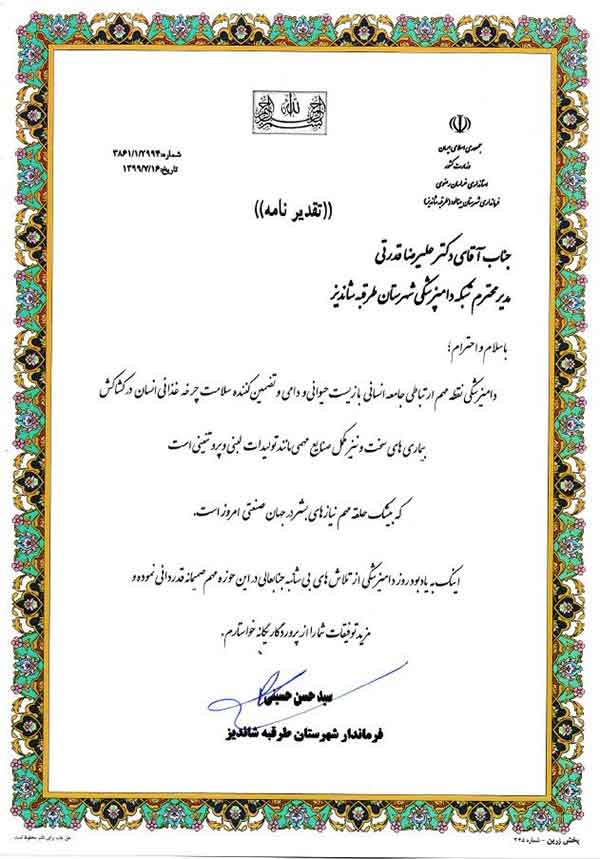 بسم الله الرحمن الرحیم
جمهوری اسلامی ایران
وزارت کشور
استانداری خراسان رضوی
فرمانداری شهرستان بینالود (طرقبه شاندیز)
شماره: ۳۸۶۱/۱/۲۹۹۴
تاریخ: ۱۳۹۹/۷/۱۶
((تقدیر نامه))
جناب آقای دکتر علیرضا قدرتی
مدیر محترم شبکه دامپزشکی شهرستان طرقبه شاندیز
با سلام و احترام؛
دامپزشکی نقطه مهم ارتباطی جامعه انسانی با زیست حیوانی و دامی و تضمین کننده سلامت چرخه غذائی انسان در کشاکش
بیماری های سخت و نیز مکمل صنایع مهمی مانند تولیدات لبنی و پروتئینی است
که بیشک حلقه مهم نیازهای بشر در جهان صنعتی امروز است.
اینک به یادبود روز دامپزشکی از تلاش های بی شائبه جنابعالی در این حوزه مهم صمیمانه قدردانی نموده و
مزید توفیقات شما را از پروردگار یگانه خواستارم.
سید حسن حسینی
فرماندار شهرستان طرقبه شاندیز
پخش زرین - شماره ۲۴۵
حق چاپ برای ناشر محفوظ است